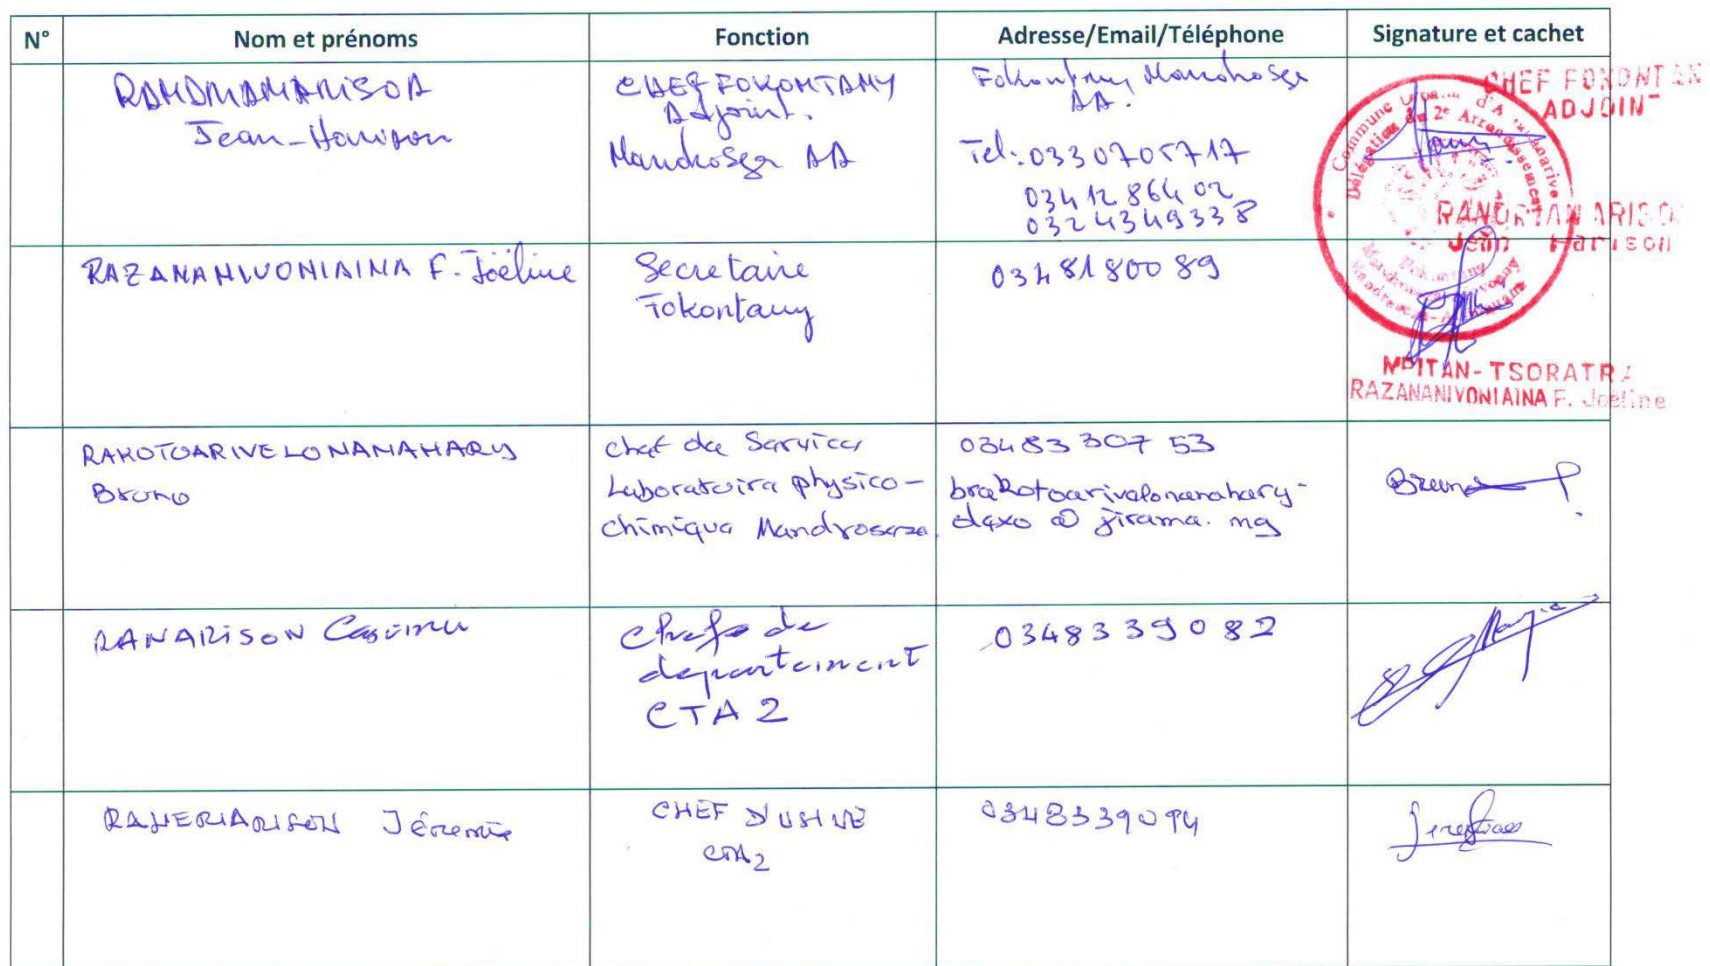 N° Nom et prénoms Fonction Adresse/Email/Téléphone Signature et cachet
Jean-Harison
CHEF FOKONTANY
Adjoint.
Mandrosez AA
Fokontany Mandrosez
AA.
Tel: 033 07 057 17
034 12 864 02
032 43 493 38
CHEF FOKONTAN
ADJOINT
Commune d'A
Délégation du 2e Arrondissement
Jean Harison
RAZANANIVONIAINA F. Joëline
Secretaire
Fokontany
034 81 800 89
MPITAN-TSORATRA
RAZANANIVONIAINA F. Joeline
RAKOTOARIVELONANAHARY
Bruno
Chef de Service
Laboratoire physico-
chimique Mandroseza.
034 83 307 53
brakotoarivelonanahary-
dexo @ jirama. mg
Bruno
RANARISON Casimir
Chef de
departement
CTA 2
034 83 390 82
RAHERIARISON Jéremie
CHEF D'USINE
CTA2
034 83 390 94